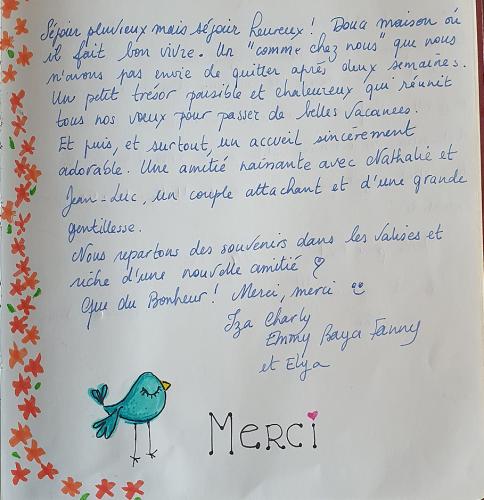 Séjour pluvieux mais séjour heureux ! Douce maison où
il fait bon vivre. Un "comme chez nous" que nous
n'avons pas envie de quitter après deux semaines.
Un petit trésor paisible et chaleureux qui réunit
tous nos vœux pour passer de belles vacances.
Et puis, et surtout, un accueil sincèrement
adorable. Une amitié naissante avec Nathalie et
Jean-Luc, un couple attachant et d'une grande
gentillesse.
Nous repartons des souvenirs dans les valises et
riche d'une nouvelle amitié ♡
Que du Bonheur ! Merci, merci ☺
Iza Charly
Emmy Baya Fanny
et Elya
MERCi